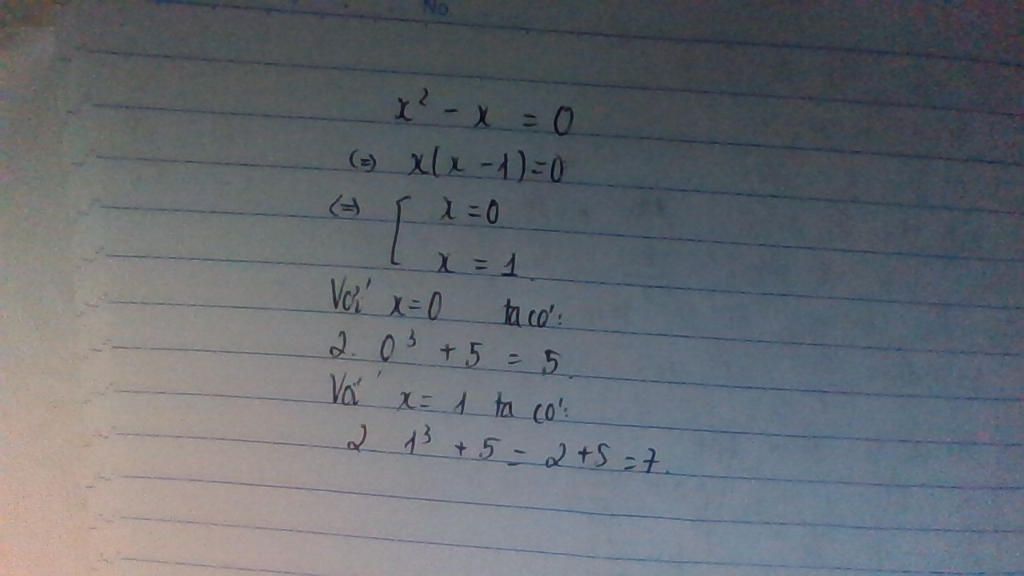 No
x² - x = 0
(=) x(x - 1) = 0
(=) [ x = 0
x = 1
Với x = 0 ta có:
2. 0³ + 5 = 5.
Với x = 1 ta có:
2 1³ + 5 = 2 + 5 = 7.